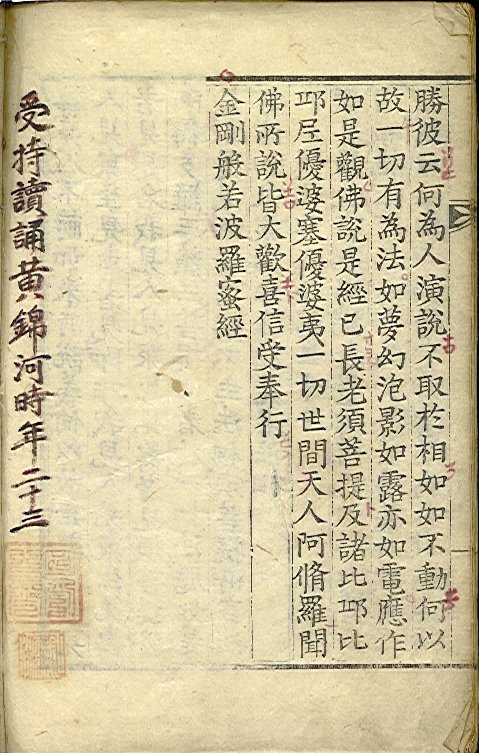 勝彼云何為人演說不取扵相如如不動何以
故一切有為法如夢幻泡影如露亦如電應作
如是觀佛說是經已長老須菩提及諸比丘比
丘尼優婆塞優婆夷一切世間天人阿脩羅聞
佛所說皆大歡喜信受奉行
金剛般若波羅蜜經
受持讀誦黄錦河時年二十三